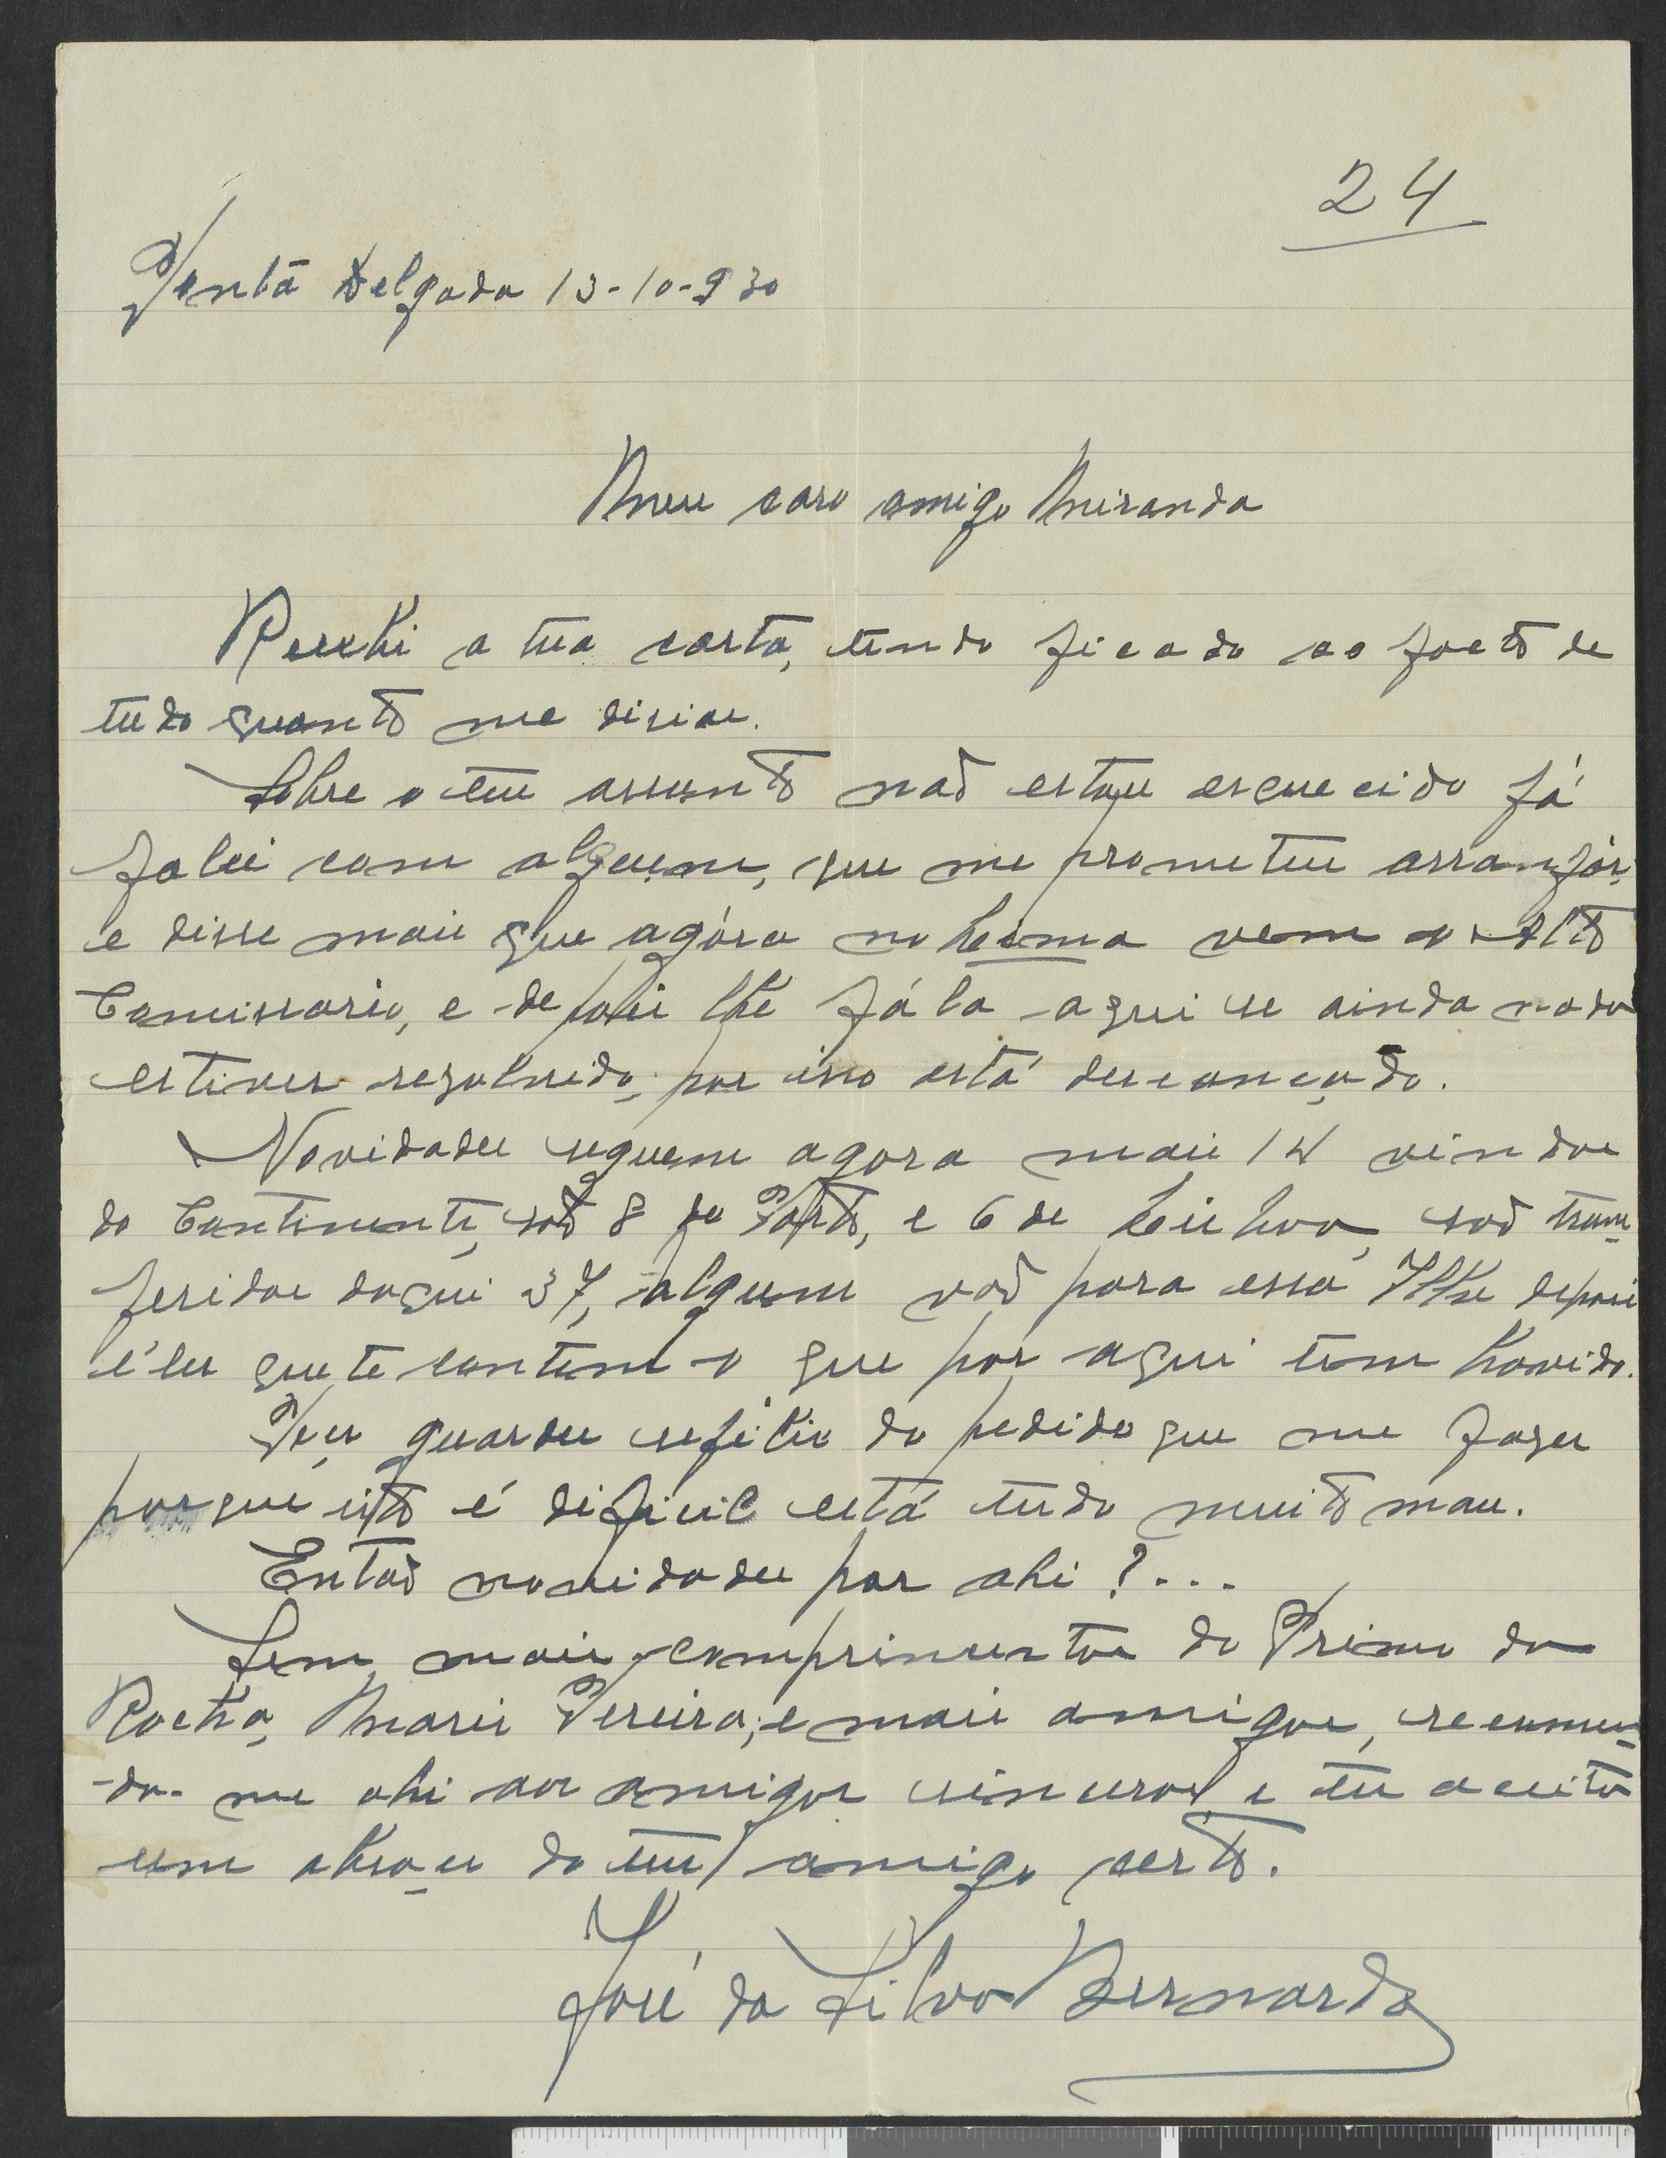 24
Ponta Delgada 13-10-930
Meu caro amigo Miranda
Recebi a tua carta, tendo ficado ao facto de
tudo quanto me disias.
Sobre o teu assunto não estou esquecido já
falei com alguem, que me prometeu arranjár,
e disse mais que agóra no Lima vem o Alto
Comissario, e depois lhe fála aqui se ainda nada
estiver resolvido, por isso está descançado.
Novidades seguem agora mais 14 vindos
do Continente, são 8 do Porto, e 6 de Lisboa, são trans-
feridos daqui 37, alguns vão para essa Ilha depois
eles que te contem o que por aqui tem havido.
Peço guardes sefilio do pedido que me fazes
porque isto é dificil está tudo muito mau.
Então novidades por ahi?...
Sem mais comprimentos do Primo da
Rocha, Mario Pereira, e mais amigos, recomen-
-da-me ahi aos amigos sinceros e tu aceita
um abraço do teu amigo certo.
José da Silva Bernardo